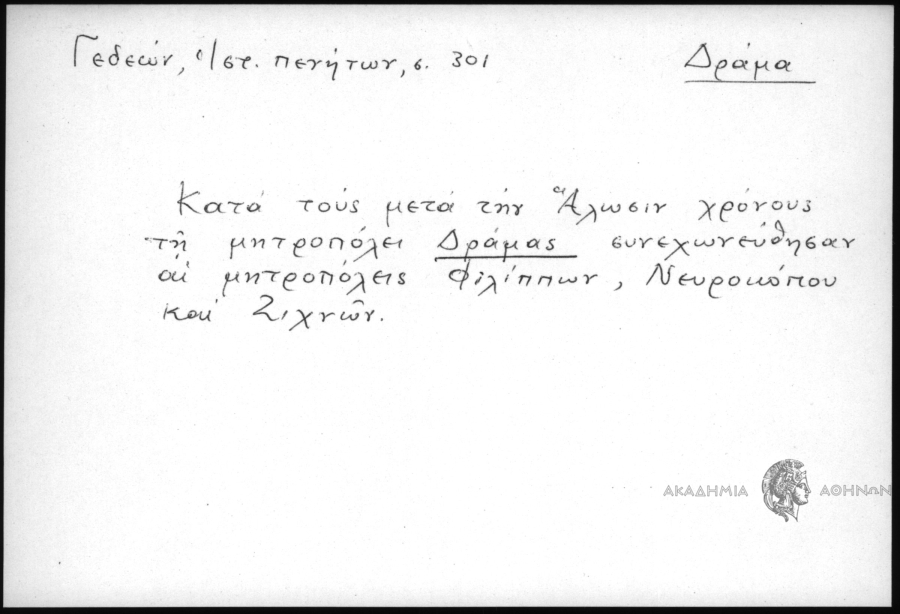 Γεδεών, Ἱστ. πενήτων, σ. 301
Δράμα
Κατά τούς μετά τήν Ἅλωσιν χρόνους
τῇ μητροπόλει Δράμας συνεχωνεύθησαν
αἱ μητροπόλεις Φιλίππων, Νευροκόπου
καί Ζιχνῶν.
ΑΚΑΔΗΜΙΑ ΑΘΗΝΩΝ